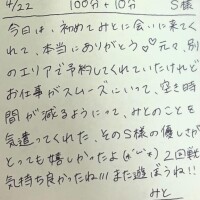 4/22 100分+10分 S様
今日は、初めてみとに会いに来てく
れて、本当にありがとう♡♡元々、別
のエリアで予約してくれていたけれど
お仕事がスムーズにいって、空き時
間が減るようにって、みとのことを
気遣ってくれた、そのS様の優しさが
とっても嬉しかったよ(*´▽`*)2回戦
気持ち良かったね!!!また遊ぼうね!!
みと